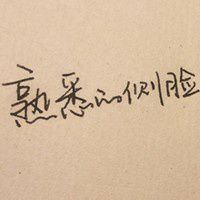 熟悉的侧脸